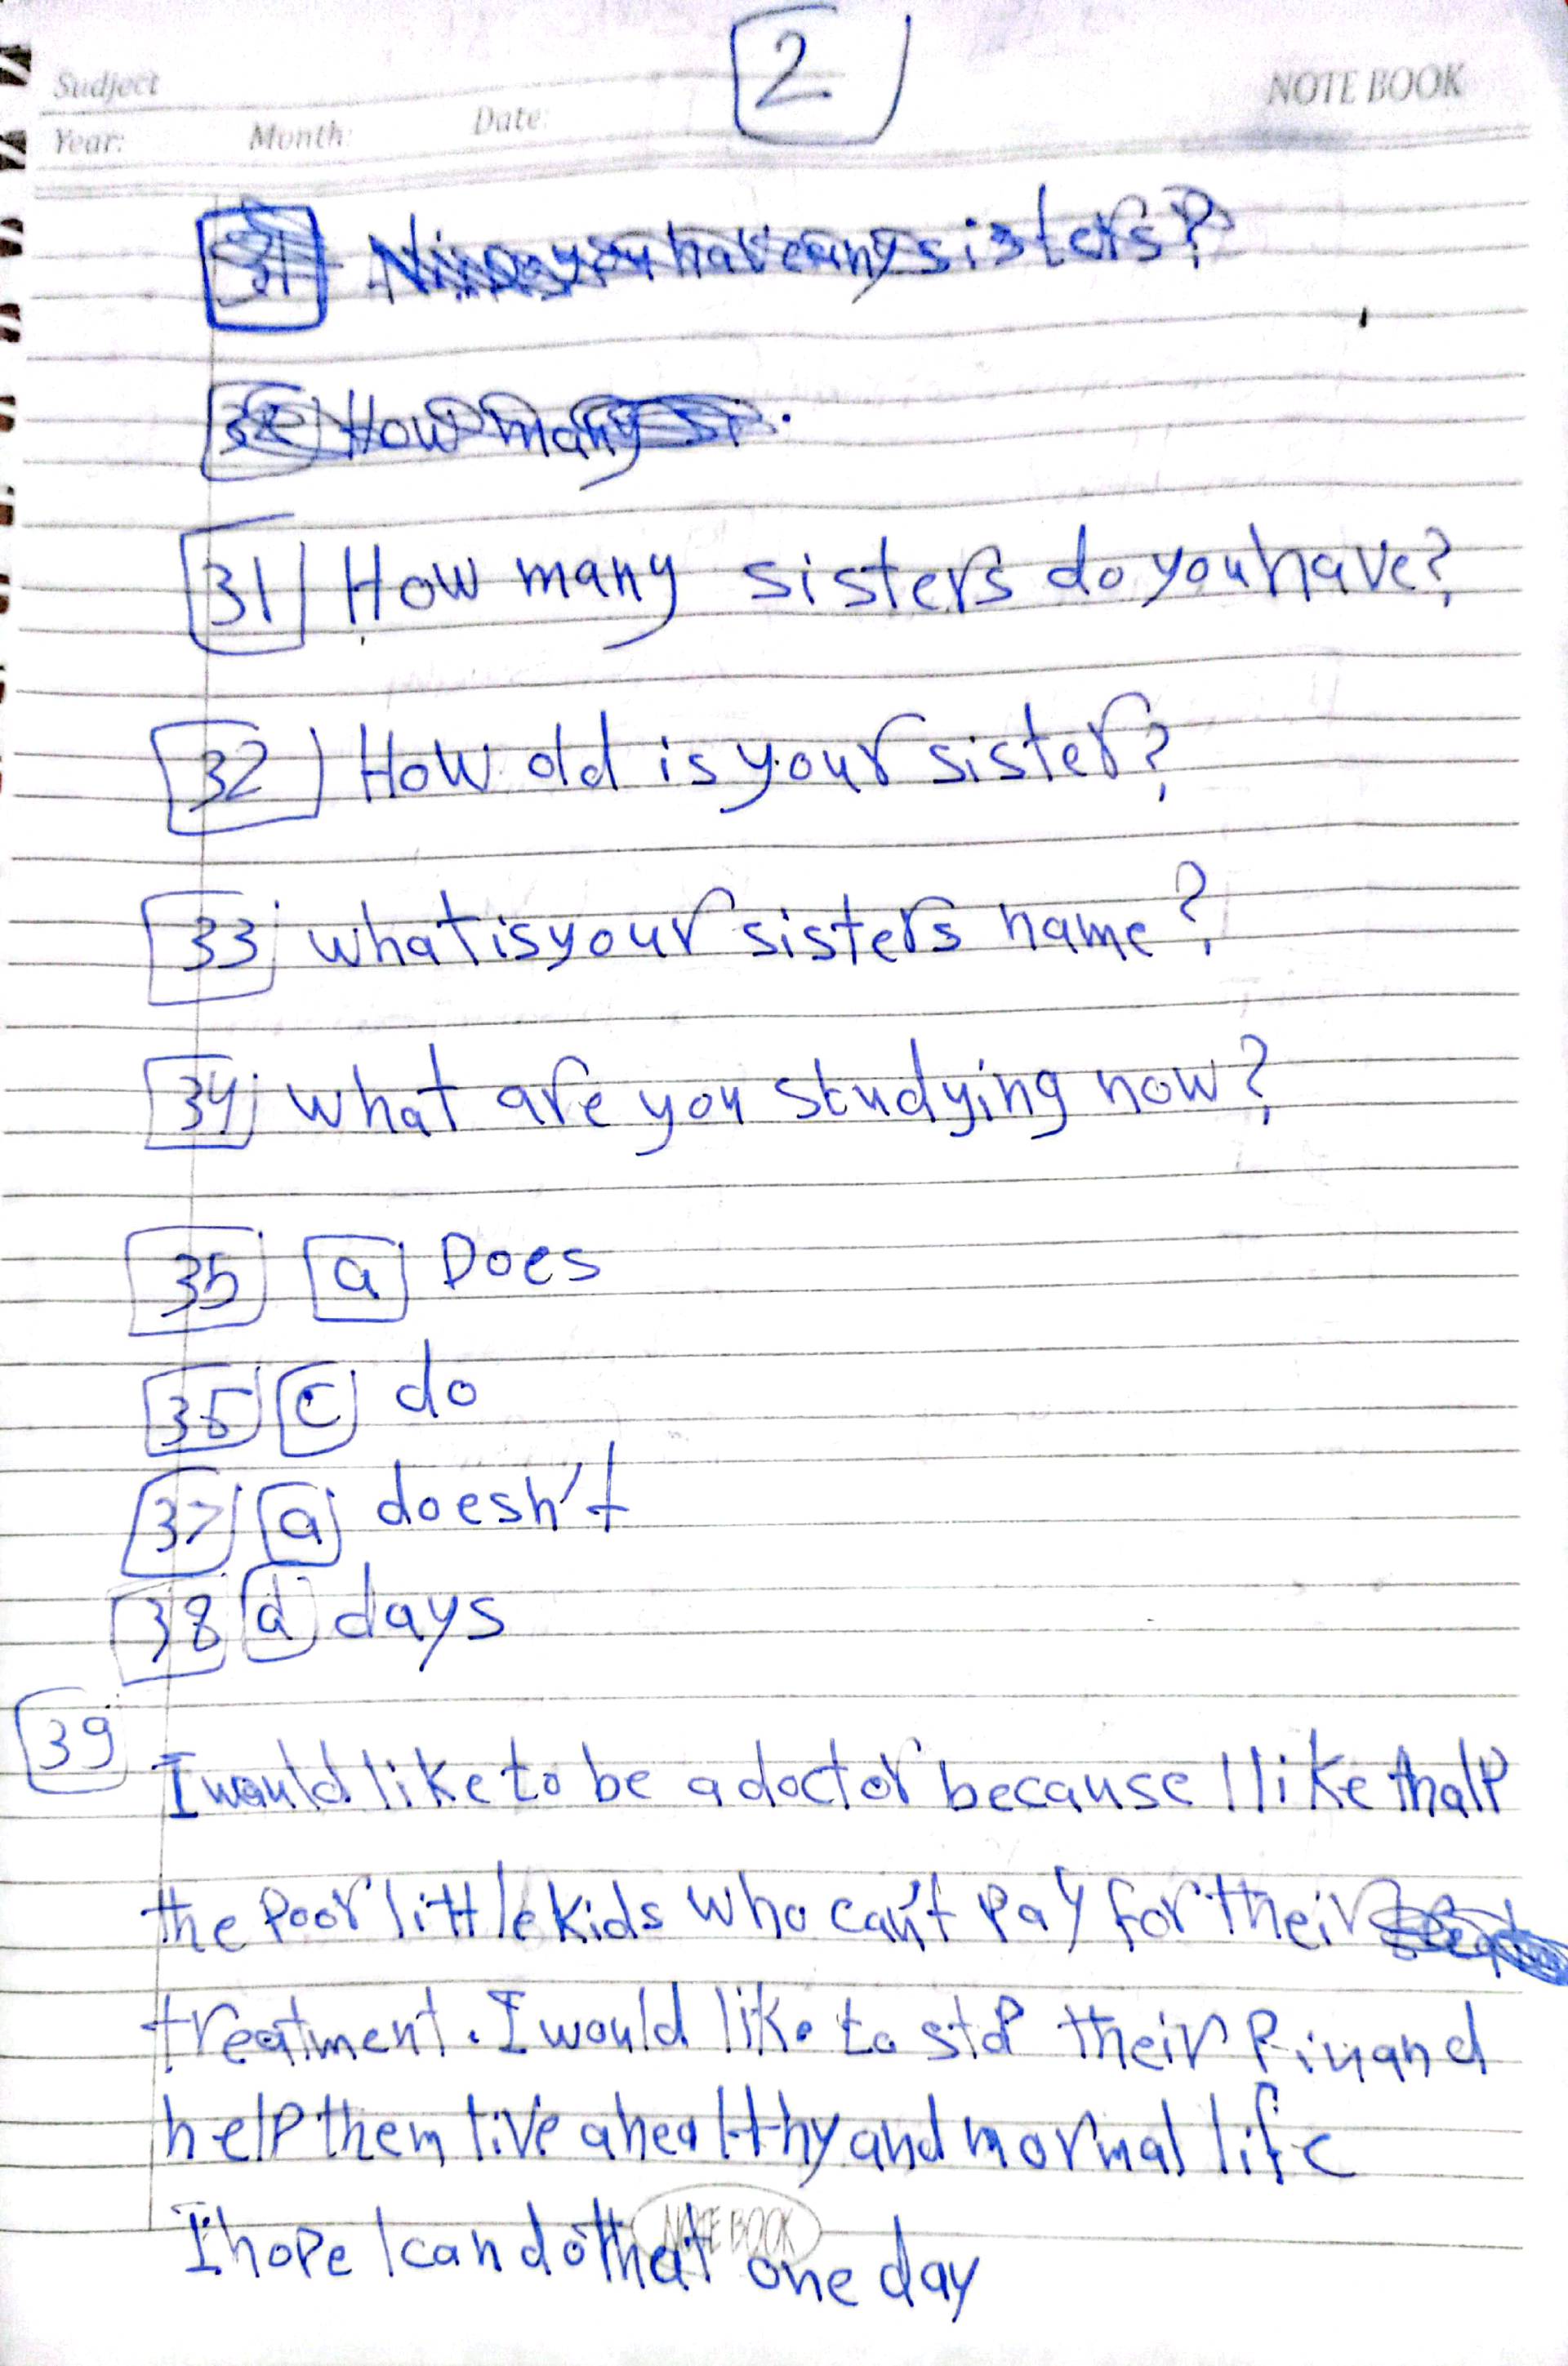 2
Sudject
NOTE BOOK
Year: Month: Date:
31 you have any sisters?
32 How many si
31 How many sisters do you have?
32 How old is your sister?
33 what is your sisters name?
34 what are you studying now?
35 a Does
36 c do
37 a doesn't
38 d days
39
I would like to be a doctor because I like thalp
the poor little kids who can't pay for their
treatment. I would like to stop their and
help them live a healthy and normal life
I hope I can do that one day
NOTE BOOK